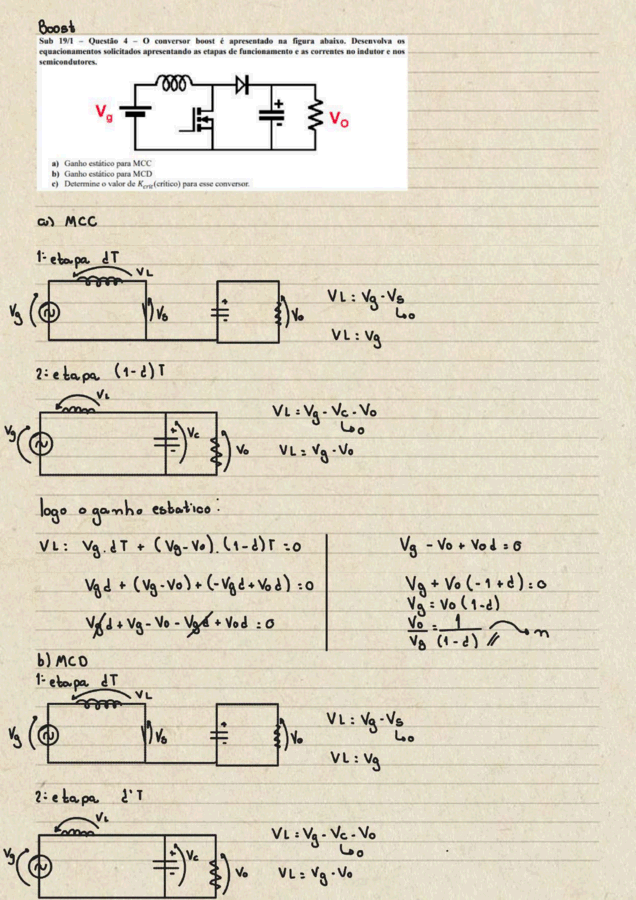 Boost
Sub 19/1 – Questão 4 – O conversor boost é apresentado na figura abaixo. Desenvolva os
equacionamentos solicitados apresentando as etapas de funcionamento e as correntes no indutor e nos
semicondutores.
Vg
+
-
VO
a) Ganho estático para MCC
b) Ganho estático para MCD
c) Determine o valor de Kcrit(crítico) para esse conversor.
a) MCC
1: etapa dT
VL
Vg
Vs
+
Vo
VL: Vg - Vs
↳0
VL: Vg
2: etapa (1-d)T
VL
Vg
+
Vc
Vo
VL = Vg - Vc - Vo
↳0
VL = Vg - Vo
logo o ganho estatico:
VL: Vg.dT + (Vg-Vo).(1-d)T = 0
Vgd + (Vg-Vo) + (-Vgd+Vod) = 0
Vgd + Vg - Vo - Vgd + Vod = 0
Vg - Vo + Vod = 0
Vg + Vo(-1+d) = 0
Vg = Vo(1-d)
Vo/Vg = 1/(1-d) // → n
b) MCD
1: etapa dT
VL
Vg
Vs
+
Vo
VL: Vg - Vs
↳0
VL: Vg
2: etapa d'T
VL
Vg
+
Vc
Vo
VL = Vg - Vc - Vo
↳0
VL = Vg - Vo